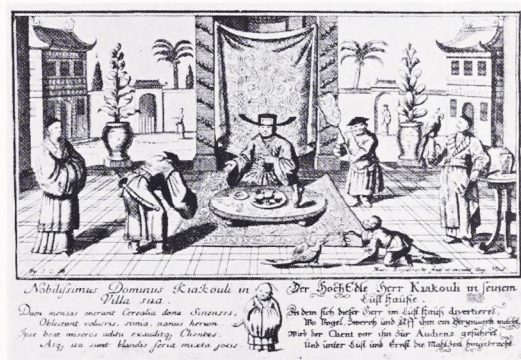 Nobilissimus Dominus Kiakouli in
Villa sua.
Dum mensas onerant Cerealia dona Sinenses,
Oblectant volucris, simia, nanus herum
Ipse beat miseros aditu exauditq; Clientes,
Atq; ita sunt blandis seria mixta jocis.
Der HochEdle Herr Kiakouli in seinem
Lust Hause
In dem sich dieser Herr im Lust Hauß divertieret,
Wo Vogel, Zwerch und Aff ihm ein Vergnügen macht,
Wird der Client vor ihn zur Audienz geführet,
Und unter Lust und Ernst die Mahlzeit hingebracht.